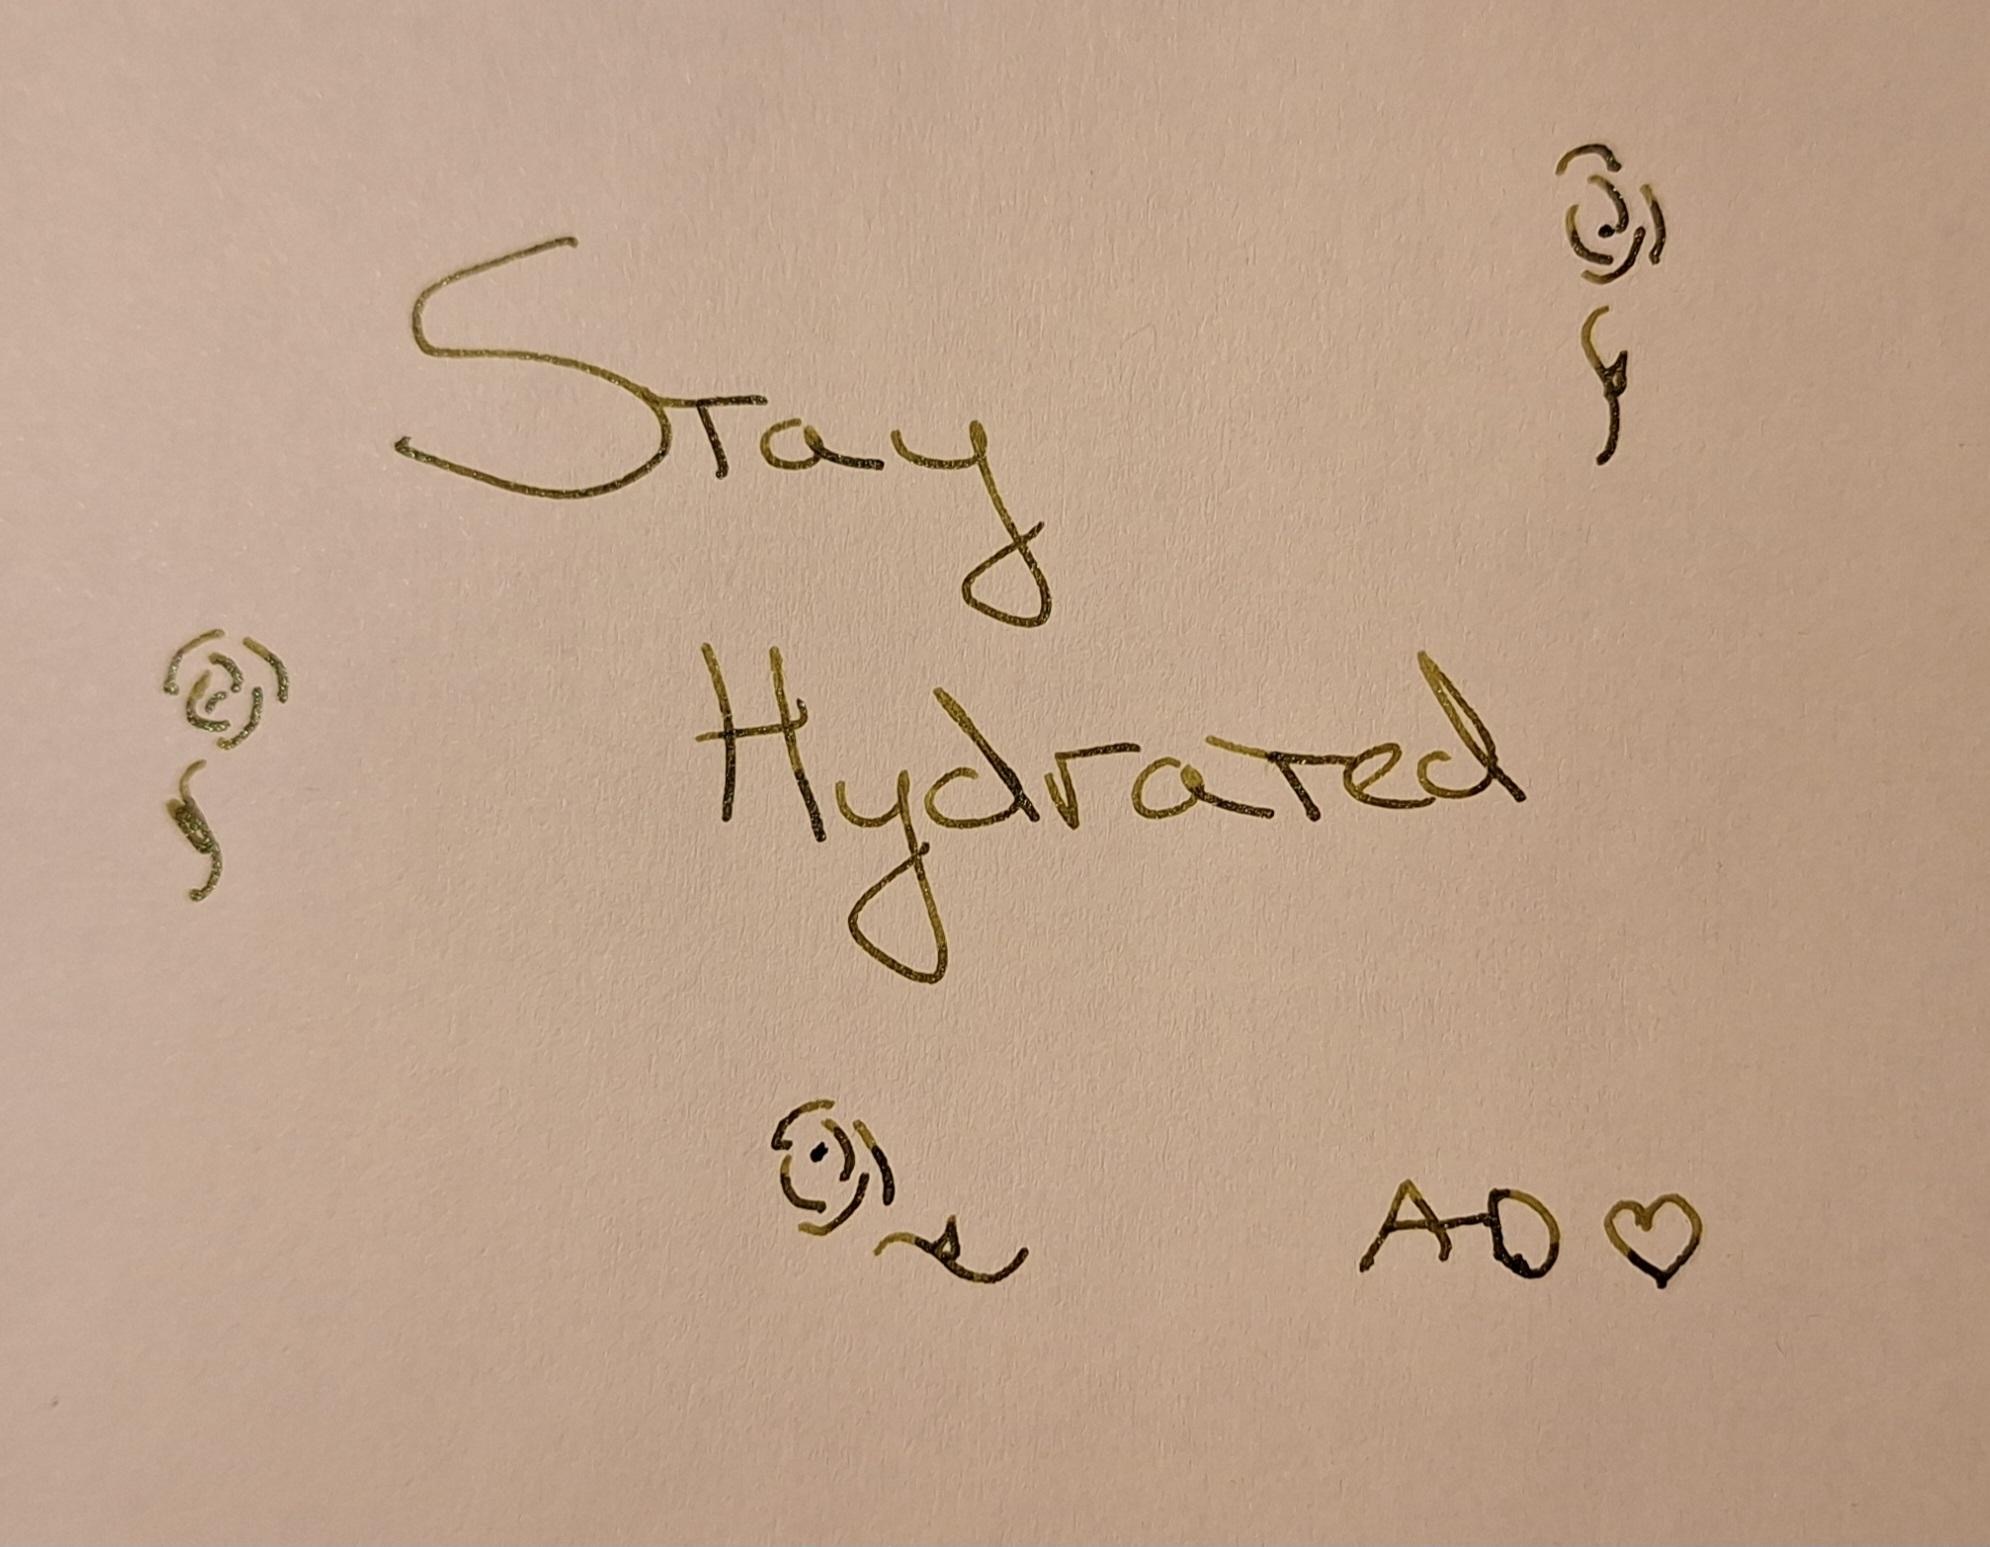 Stay
Hydrated
AD ♡